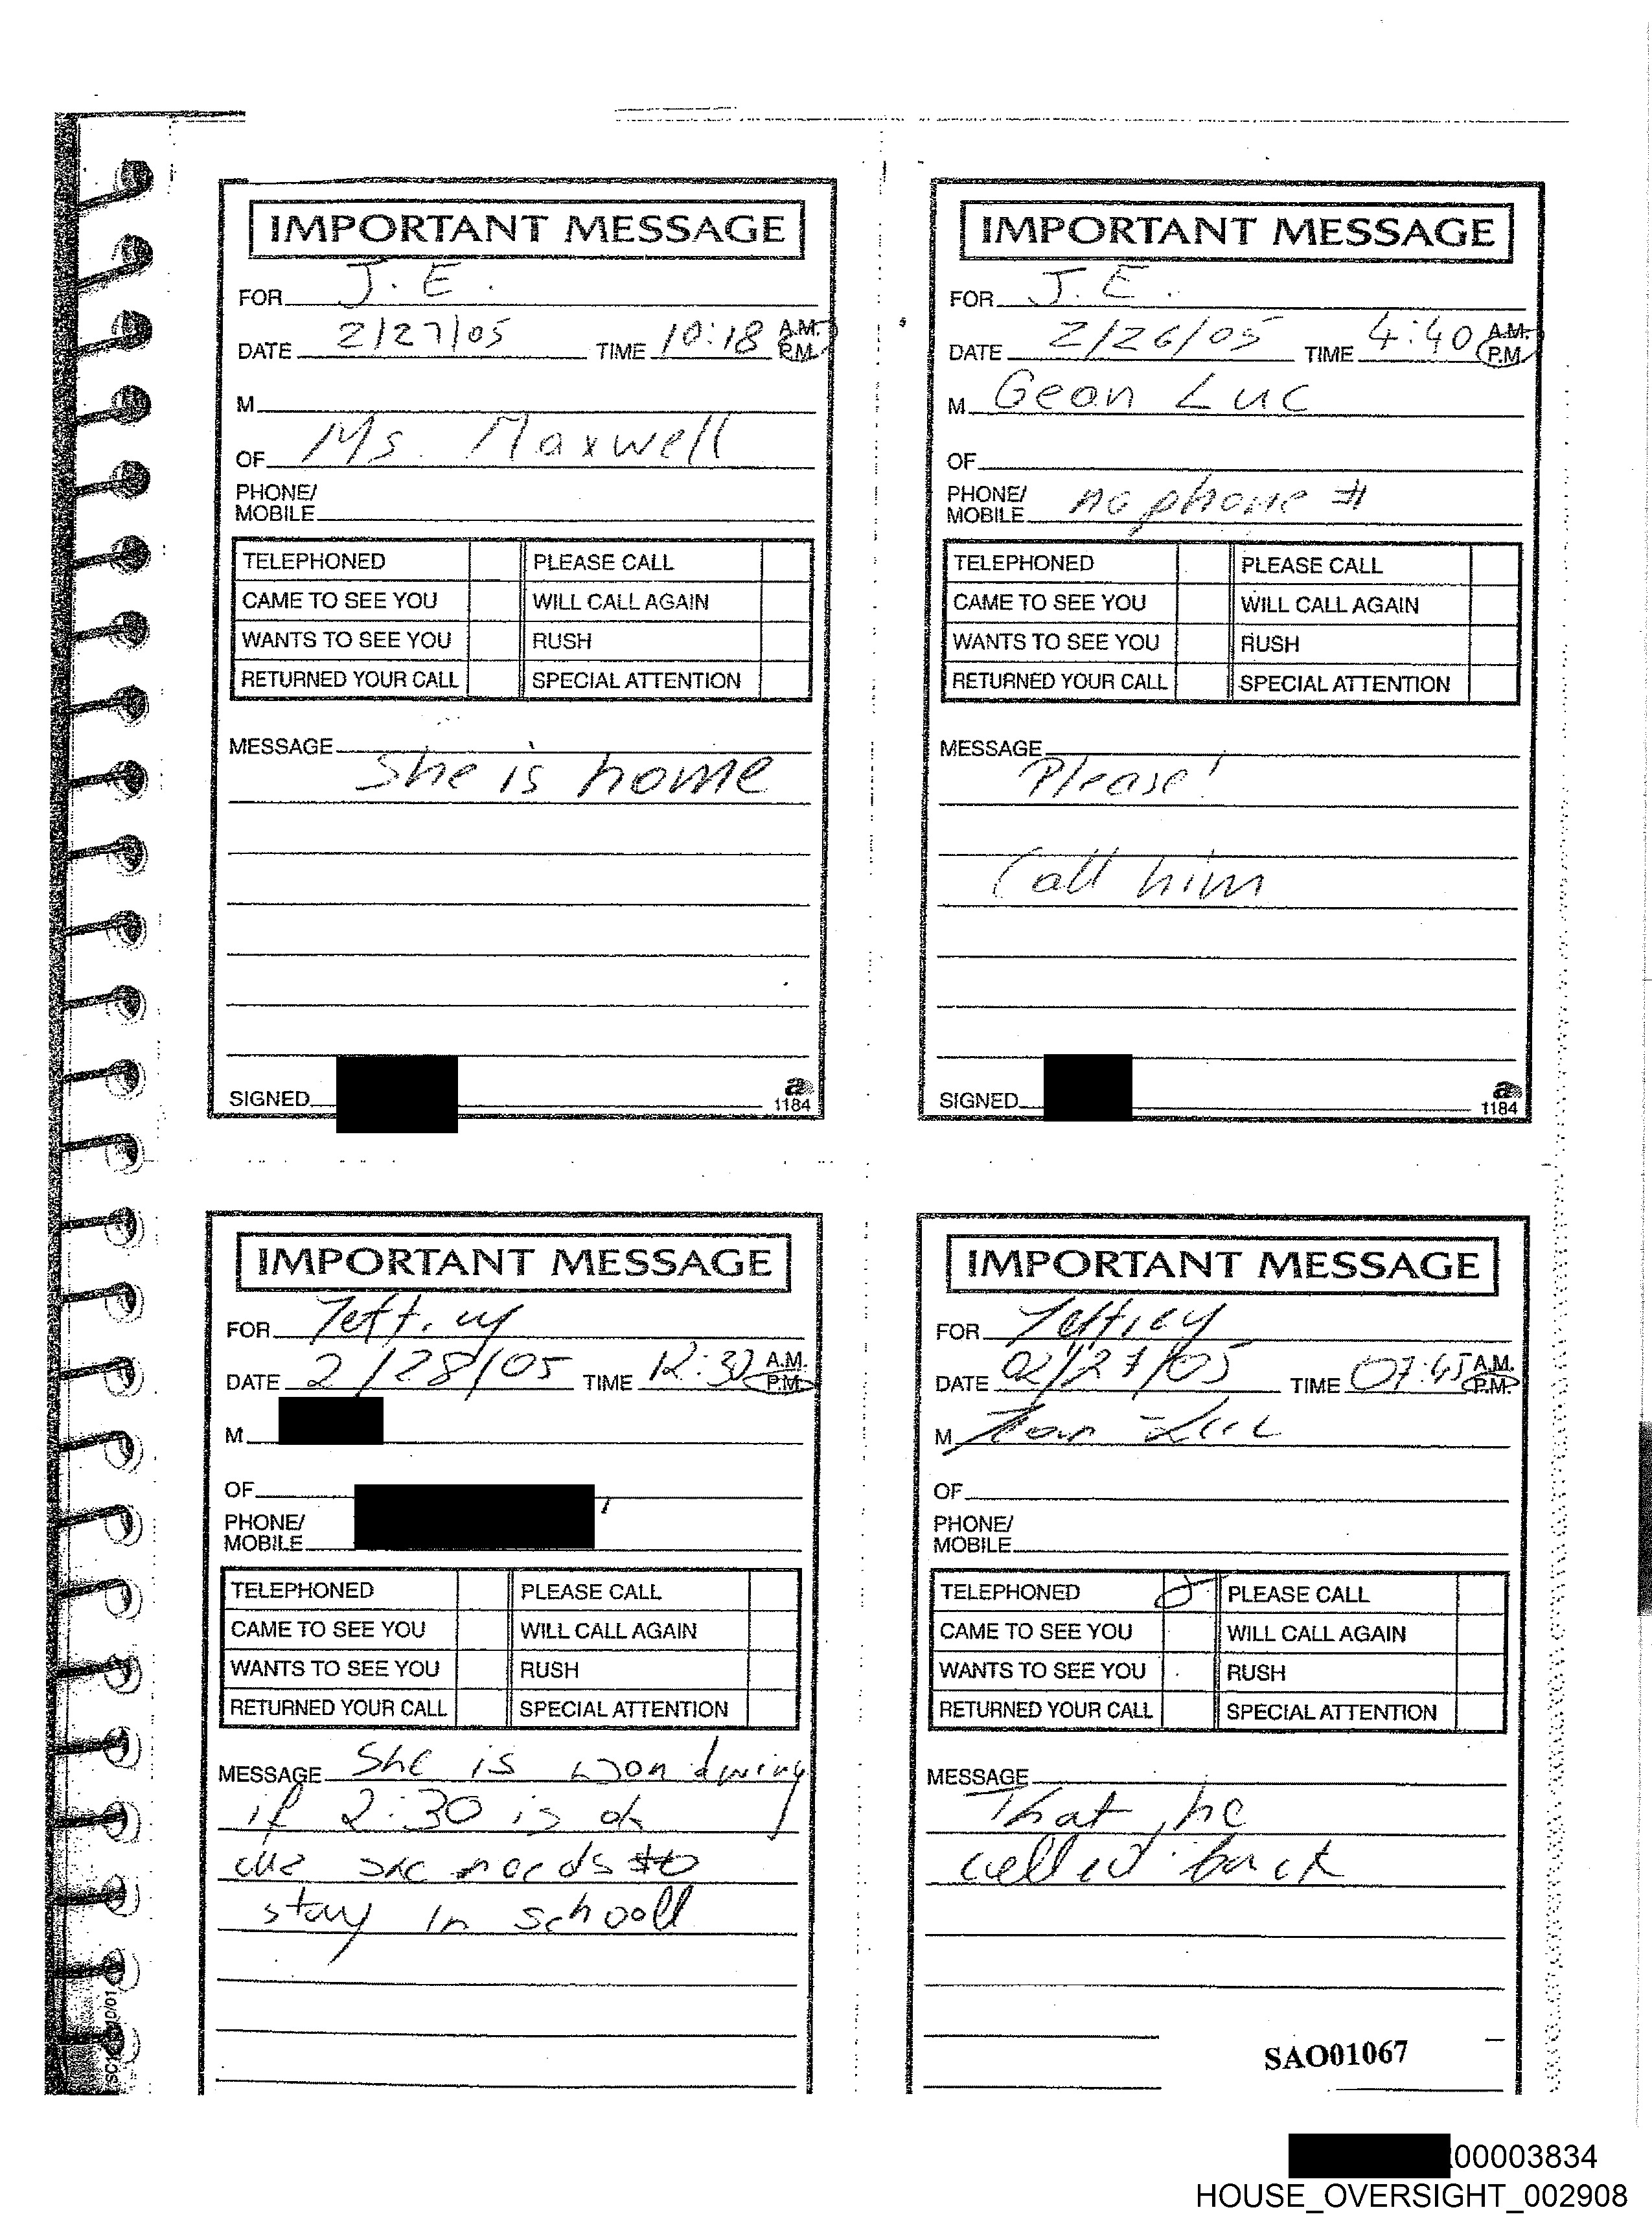 IMPORTANT MESSAGE
FOR J.E.
DATE 2/27/05 TIME 10:18 A.M. P.M.
M
OF Ms. Maxwell
PHONE/
MOBILE
TELEPHONED PLEASE CALL
CAME TO SEE YOU WILL CALL AGAIN
WANTS TO SEE YOU RUSH
RETURNED YOUR CALL SPECIAL ATTENTION
MESSAGE
She is home
SIGNED
a
1184
IMPORTANT MESSAGE
FOR J.E.
DATE 2/26/05 TIME 4:40 A.M. P.M.
M Gean Luc
OF
PHONE/
MOBILE no phone #
TELEPHONED PLEASE CALL
CAME TO SEE YOU WILL CALL AGAIN
WANTS TO SEE YOU RUSH
RETURNED YOUR CALL SPECIAL ATTENTION
MESSAGE
Please!
Call him
SIGNED
a
1184
IMPORTANT MESSAGE
FOR Jeffrey
DATE 2/28/05 TIME 12:32 A.M. P.M.
M
OF
PHONE/
MOBILE
TELEPHONED PLEASE CALL
CAME TO SEE YOU WILL CALL AGAIN
WANTS TO SEE YOU RUSH
RETURNED YOUR CALL SPECIAL ATTENTION
MESSAGE She is wondwring
if 2:30 is ok
she needs to
stay in schooll
IMPORTANT MESSAGE
FOR Jeffrey
DATE 02/27/05 TIME 07:45 A.M. P.M.
M Jean-Luc
OF
PHONE/
MOBILE
TELEPHONED PLEASE CALL
CAME TO SEE YOU WILL CALL AGAIN
WANTS TO SEE YOU RUSH
RETURNED YOUR CALL SPECIAL ATTENTION
MESSAGE
That he
called back
SAO01067
00003834
HOUSE_OVERSIGHT_002908